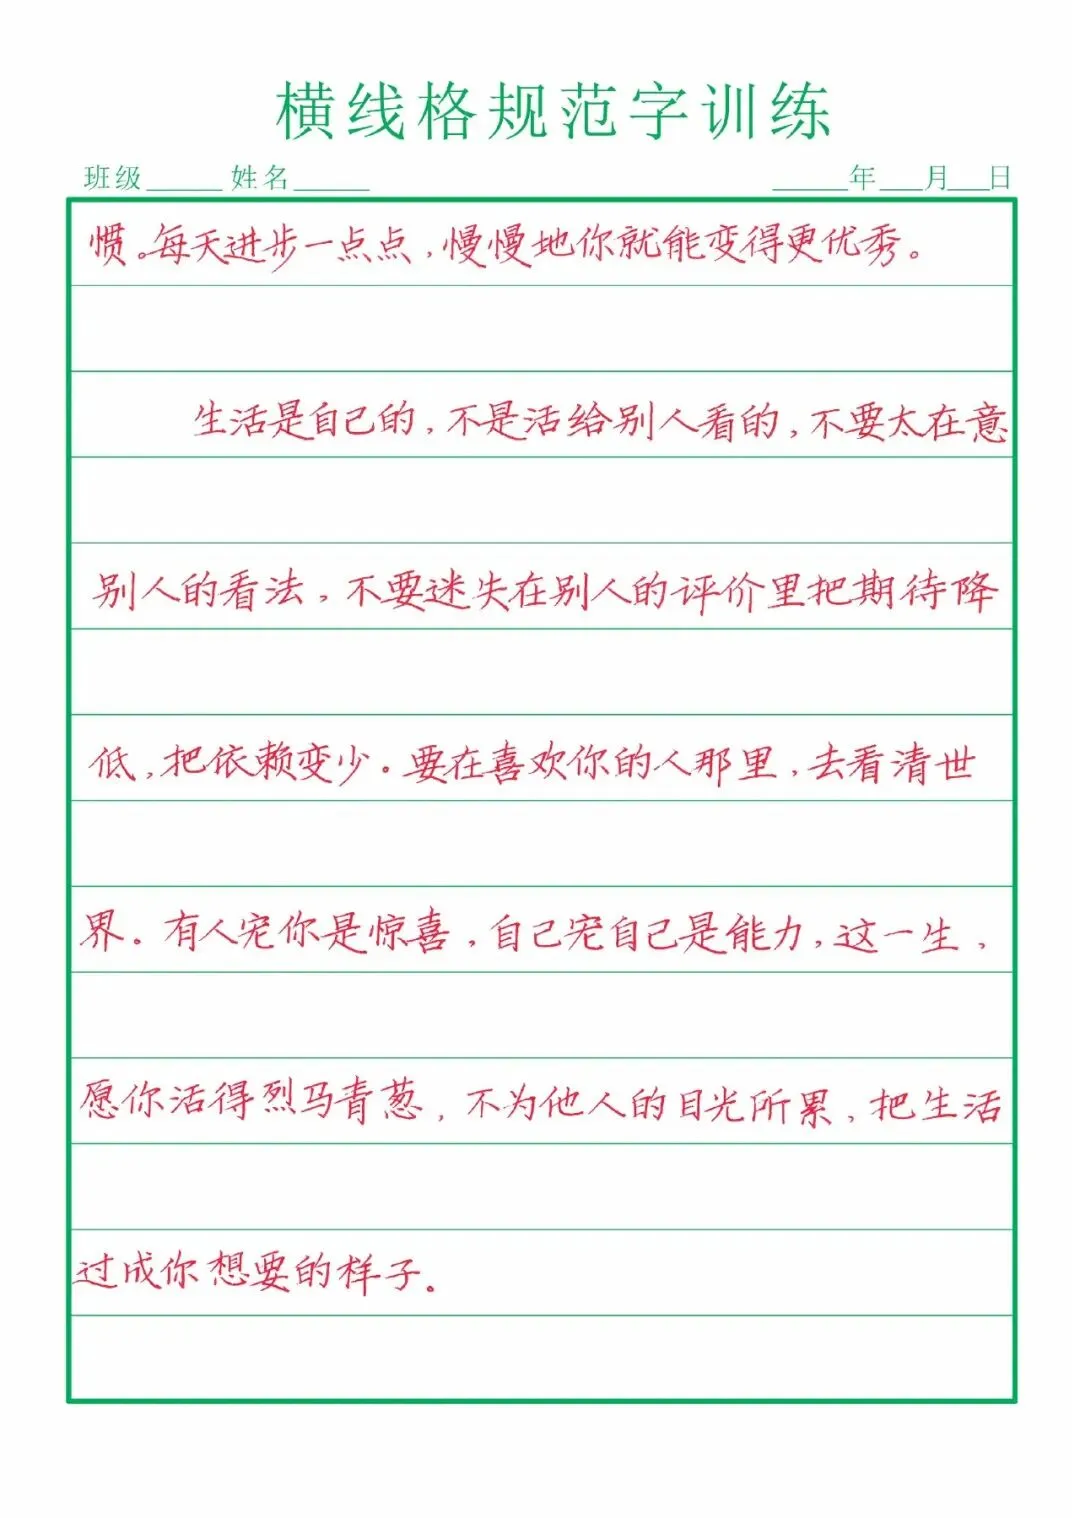 横线格规范字训练
班级_____ 姓名_____ _____年___月___日
惯。每天进步一点点，慢慢地你就能变得更优秀。
生活是自己的，不是活给别人看的，不要太在意
别人的看法，不要迷失在别人的评价里把期待降
低，把依赖变少。要在喜欢你的人那里，去看清世
界。有人宠你是惊喜，自己宠自己是能力，这一生，
愿你活得烈马青葱，不为他人的目光所累，把生活
过成你想要的样子。